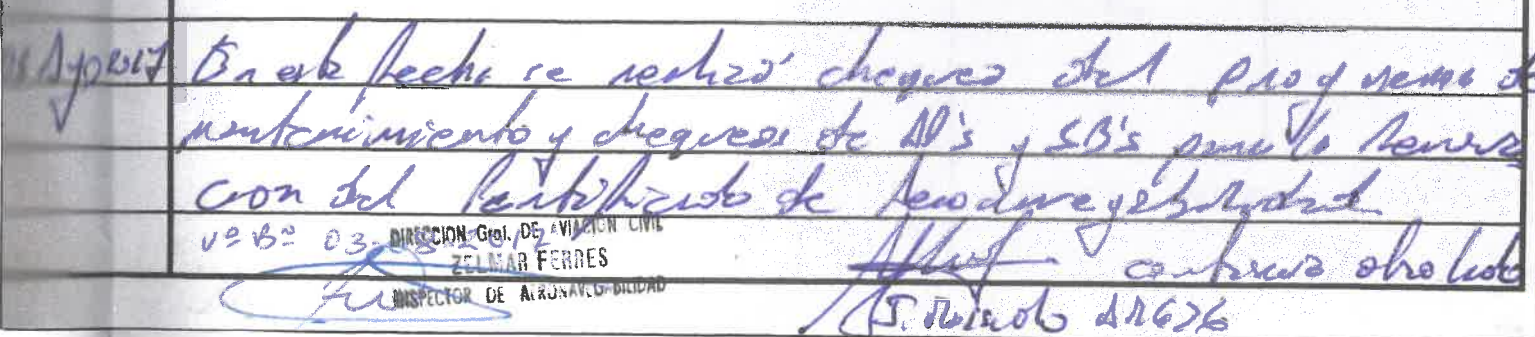 Ago 2017 En esta fecha se realizó chequeo del programa de
mantenimiento y chequeos de AD's y SB's para la Renova
cion del Certificado de Aeronavegabilidad
Vº Bº 03
DIRECCION Gral. DE AVIACION CIVIL
ZELMAR FERRES
INSPECTOR DE AERONAVEGABILIDAD
continua otro lado